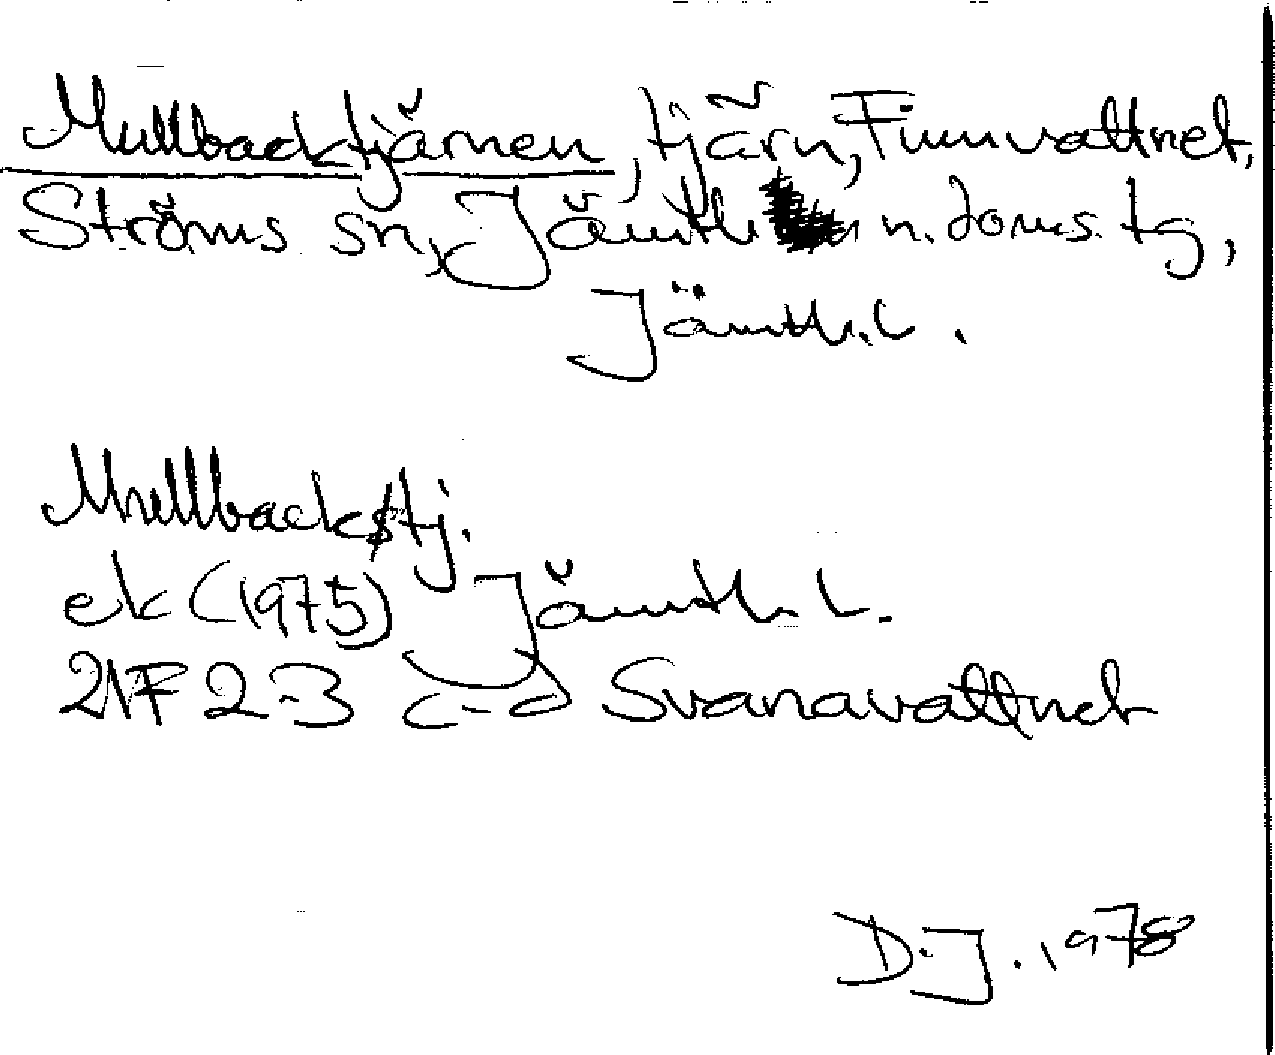 Mullbacktjärnen, tjärn, Finnvattnet,
Ströms sn, Jämtl. n. doms. tg,
Jämtl. l.
Mullbackstj.
ek (1975) Jämtl. l.
21F 2-3 c-d Svanavattnet
D.J. 1978